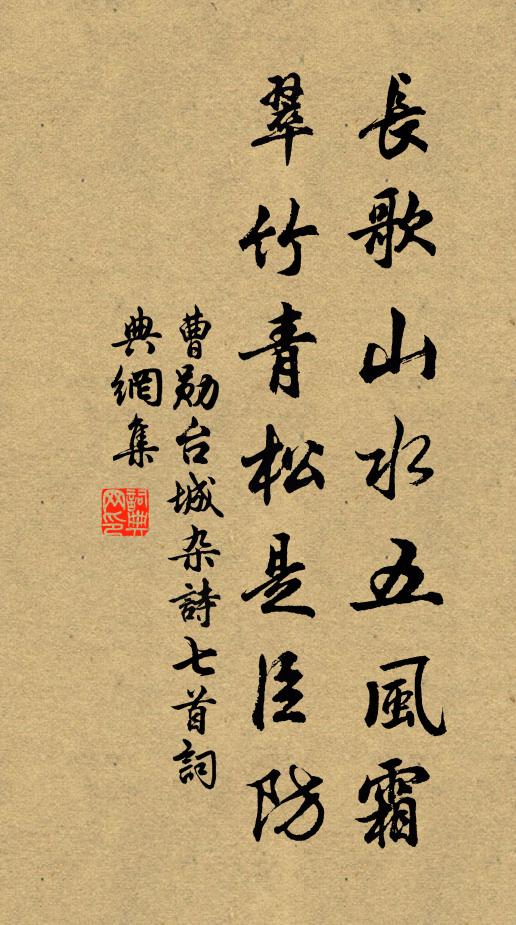 長歌山水五風霜
翠竹青松是臣防
曹勛台城杂詩七首詞
典網集
詞典网印